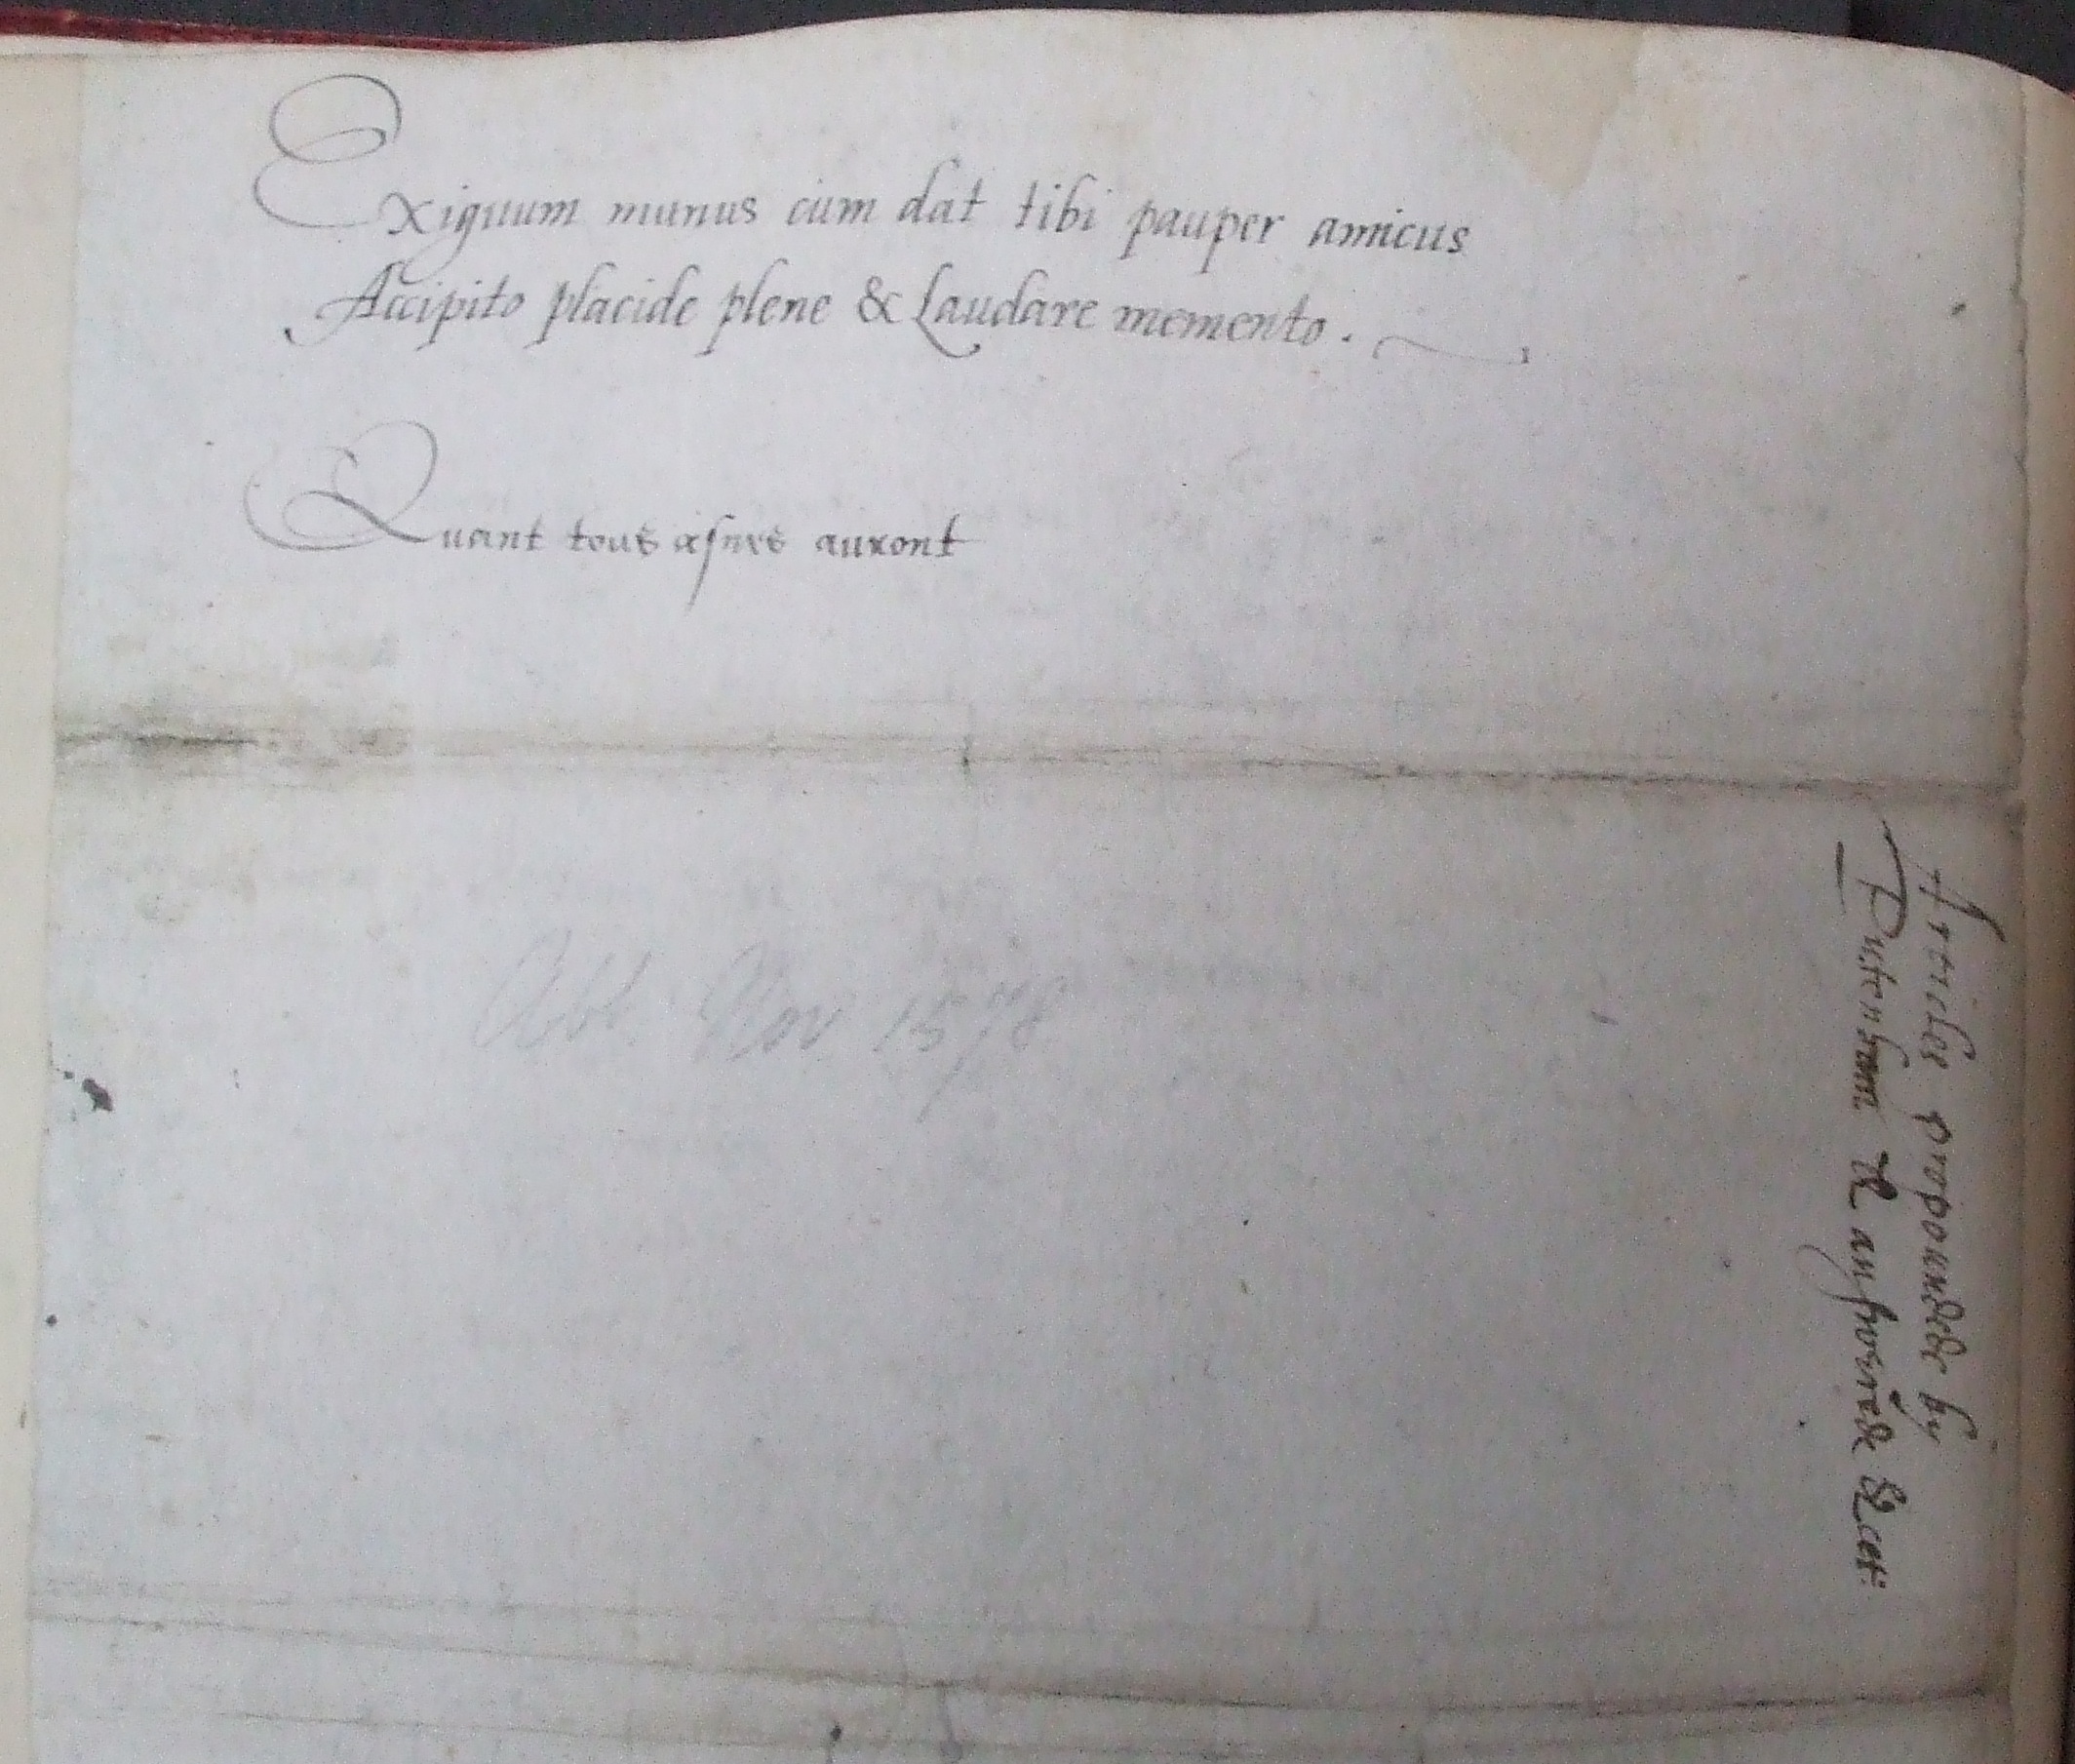 Exiguum munus cum dat tibi pauper amicus
Accipito placide plene & Laudare memento.
Quant tous asnes auront
Abt. Nov 1578
Articles propoundede by
Putenham & answerede &cet: